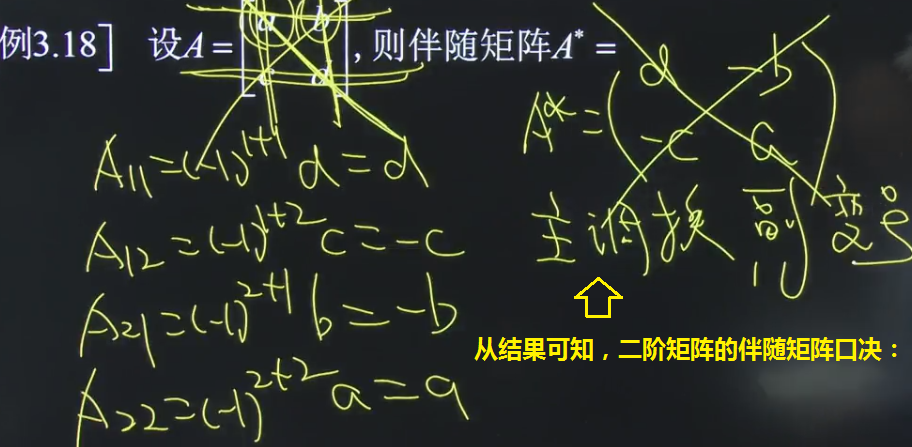 例3.18] 设A = [a b
c d], 则伴随矩阵A* =
A* = (d -b
-c a)
A₁₁ = (-1)¹⁺¹ d = d
A₁₂ = (-1)¹⁺² c = -c
A₂₁ = (-1)²⁺¹ b = -b
A₂₂ = (-1)²⁺² a = a
主调换 副变号
从结果可知，二阶矩阵的伴随矩阵口决：